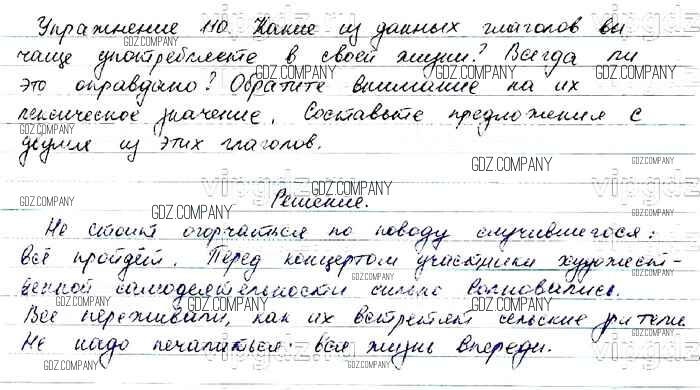 Упражнение 110. Какие из данных глаголов вы
чаще употребляете в своей жизни? Всегда ли
это оправдано? Обратите внимание на их
лексическое значение. Составьте предложения с
двумя из этих глаголов.
Решение.
Не стоит огорчаться по поводу случившегося:
всё пройдёт. Перед концертом участники художест-
венной самодеятельности сильно волновались.
Все переживали, как их встретят сельские зрители.
Не надо печалиться: вся жизнь впереди.